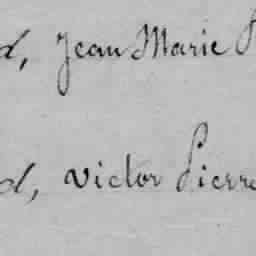 d, Jean Marie
d, Victor Pierre